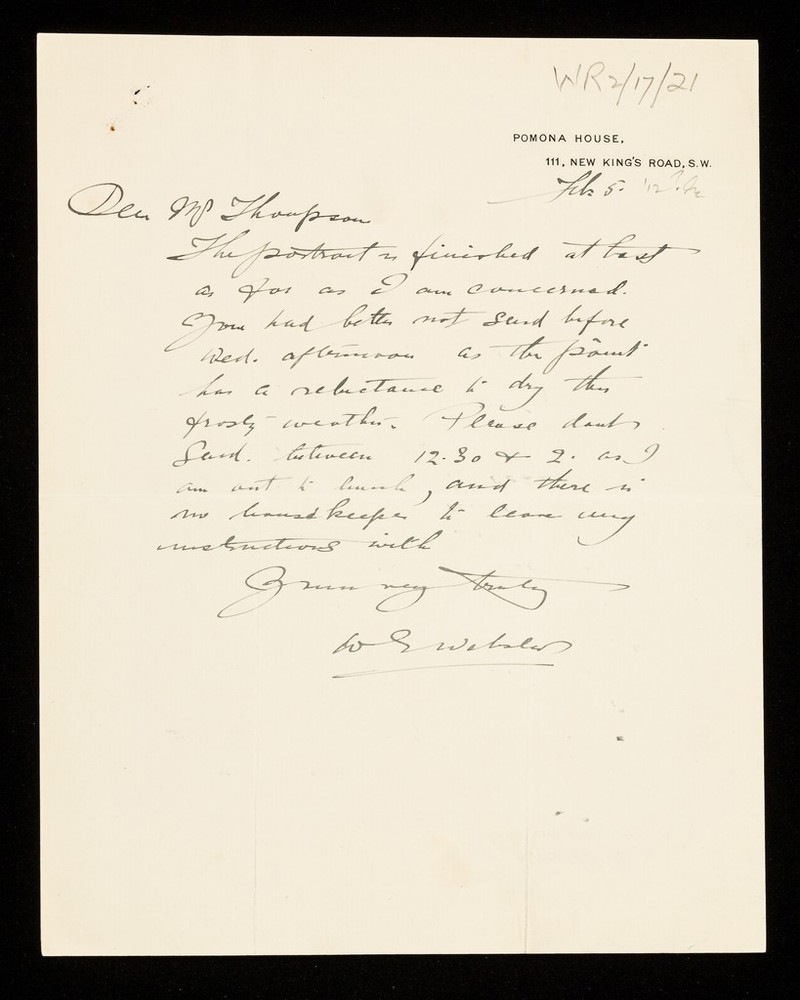 WR2/17/21
POMONA HOUSE,
111, NEW KING'S ROAD, S.W.
Feb 5. '12?
Dear Mr Thompson
The portrait is finished at least
as far as I am concerned.
You had better not send before
Wed. afternoon as the paint
has a reluctance to dry this
frosty weather. Please dont
send between 12.30 & 2. as I
am out to lunch, and there is
no housekeeper to leave any
instructions with
Yours very truly
W G Webster